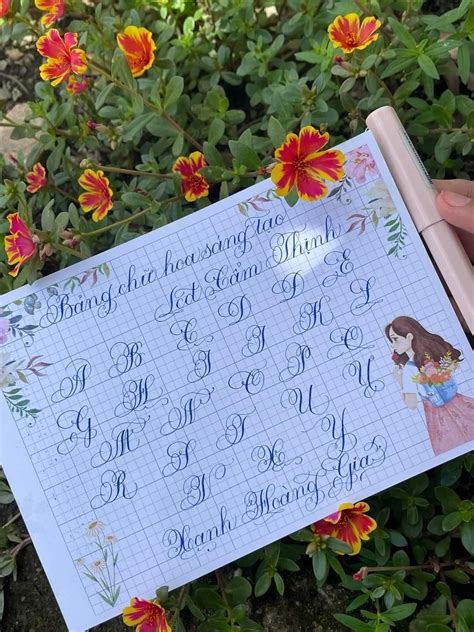 Bảng chữ hoa sáng tạo
Cẩm Thịnh
A B C D Đ E
G H I J K L
M N O P Q
R S T U
V X Y
Hạnh Hoàng Gia